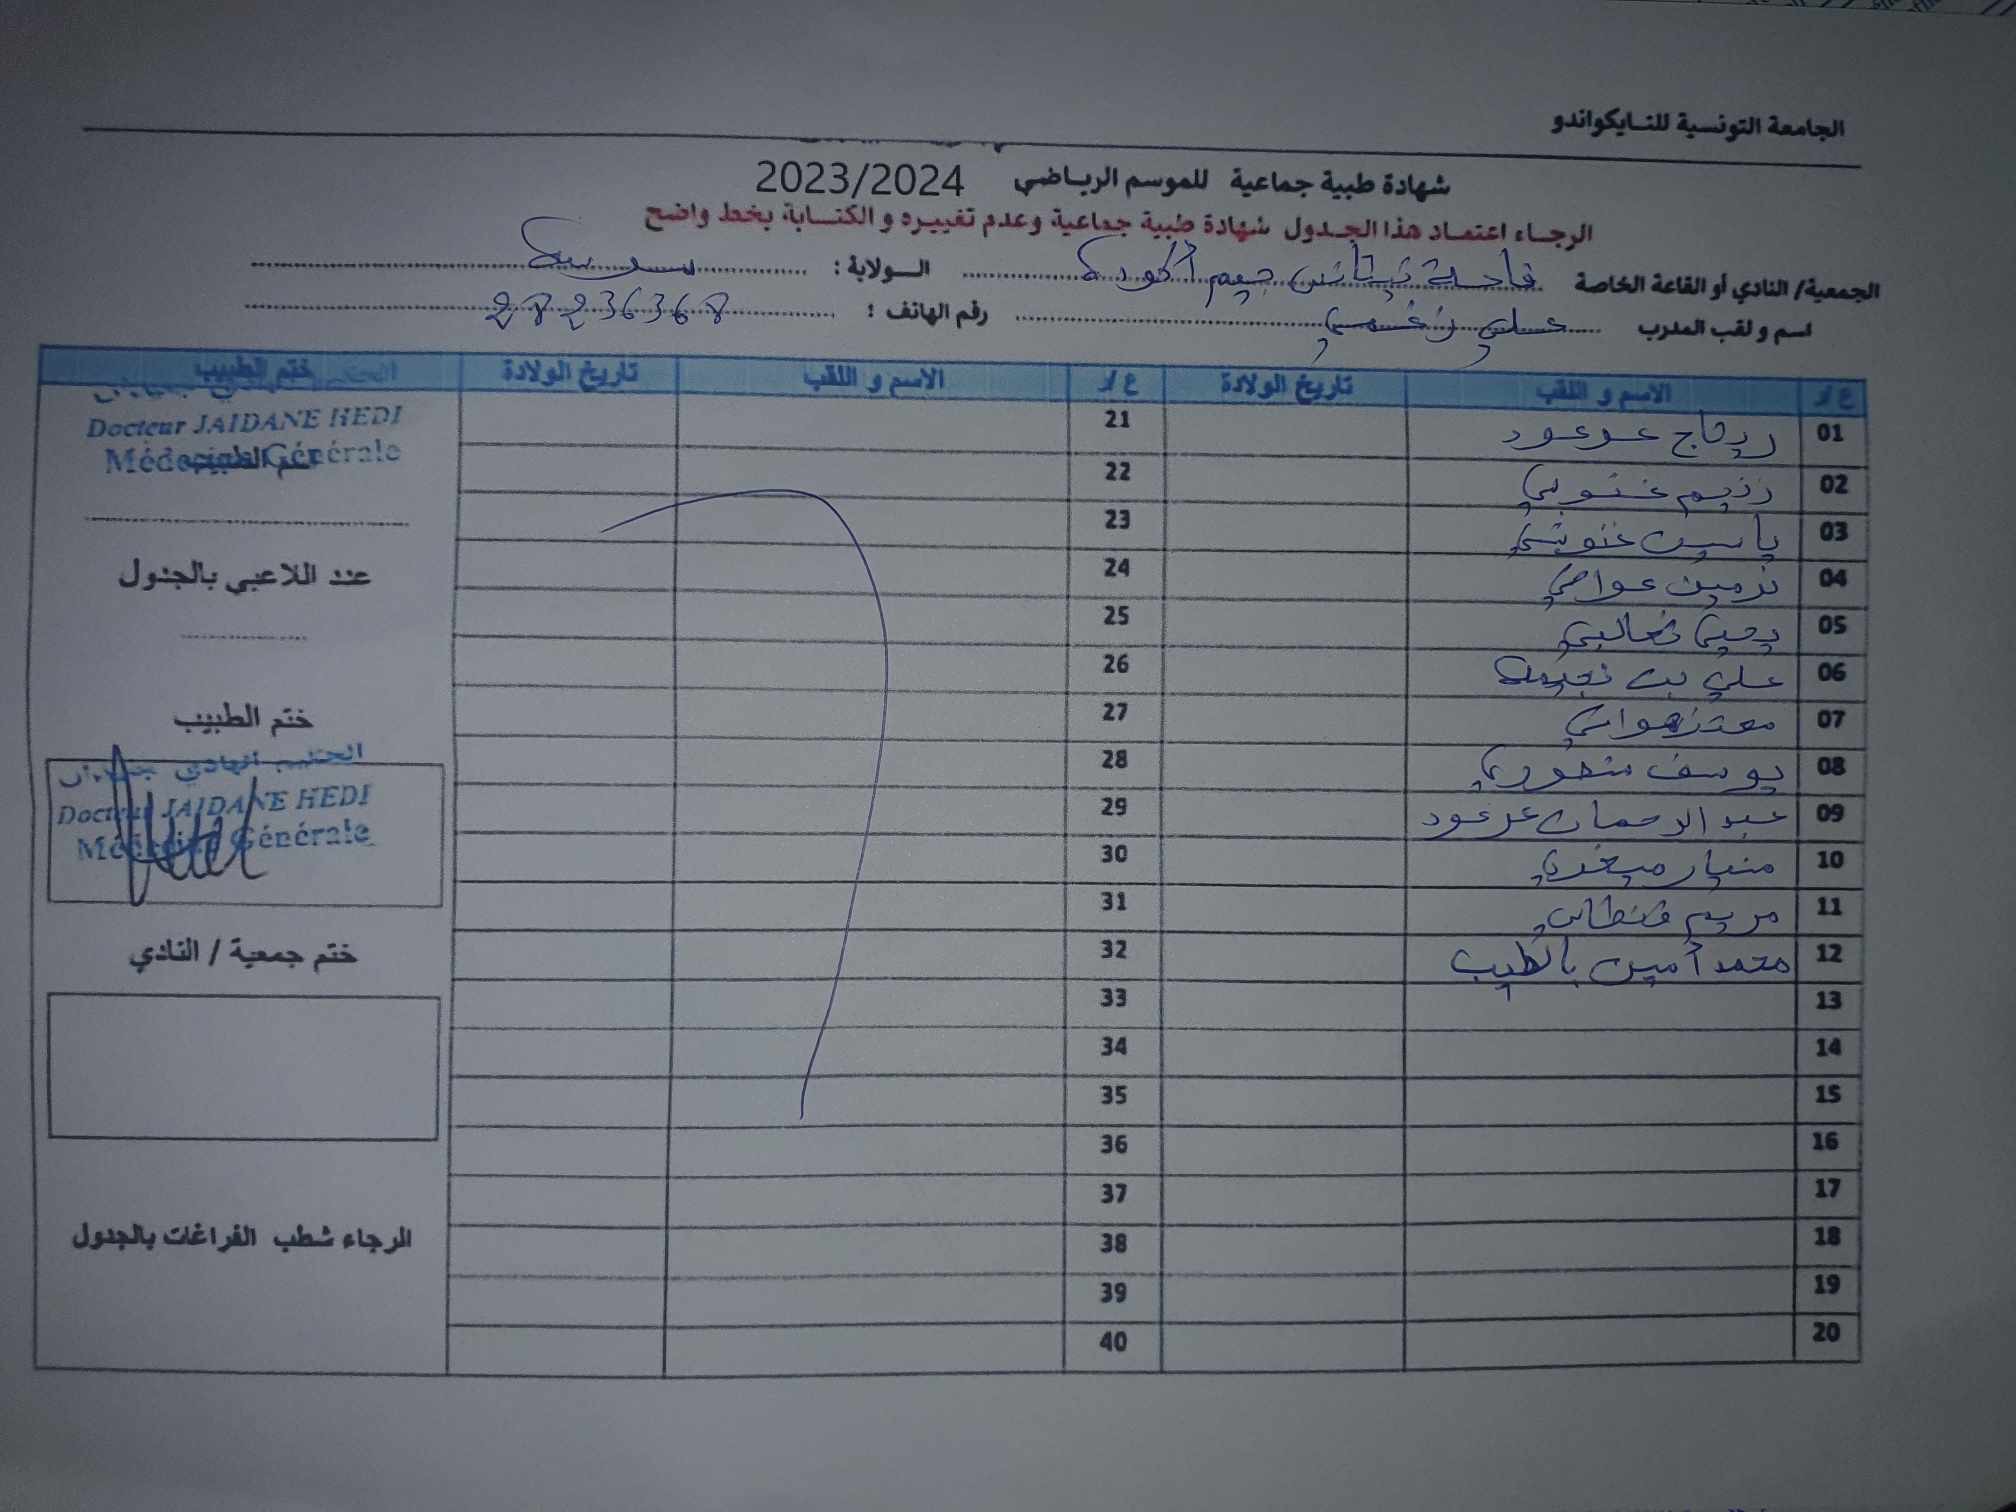 الجامعة التونسية للتايكواندو
شهادة طبية جماعية للموسم الرياضي 2023/2024
الرجاء اعتماد هذا الجدول شهادة طبية جماعية وعدم تغييره و الكتابة بخط واضح
الجمعية/ النادي أو القاعة الخاصة جيم أكودة الولاية : سوسة
اسم و لقب المدرب علي رقم الهاتف : 28236368
ع/ر الاسم و اللقب تاريخ الولادة ع/ر الاسم و اللقب تاريخ الولادة ختم الطبيب
01 ريتاج عرعود 21
02 نزيم 22
03 ياسين 23
04 نرمين 24
05 يحيى ثعالبي 25
06 علي بن نجيمة 26
07 معتز هواني 27
08 يوسف منصوري 28
09 عبد الرحمان عرعود 29
10 30
11 مريم قنطاني 31
12 محمد أمين بالطيب 32
13 33
14 34
15 35
16 36
17 37
18 38
19 39
20 40
Docteur JAIDANE HEDI
Médecine Générale
ختم الطبيب
عند اللاعبي بالجدول
ختم الطبيب
الهادي جيدان
Docteur JAIDANE HEDI
Médecine Générale
ختم جمعية / النادي
الرجاء شطب الفراغات بالجدول